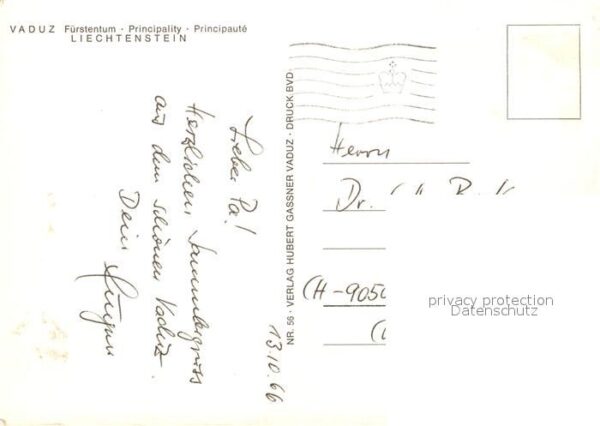 VADUZ Fürstentum · Principality · Principauté
LIECHTENSTEIN
Lieber Pa!
Herzlichen Sammlergruss
aus dem schönen Vaduz.
Dein Jürgen
13.10.66
NR. 56 · VERLAG HUBERT GASSNER VADUZ · DRUCK BVD·
Herrn
Dr.
CH-9050
privacy protection
Datenschutz